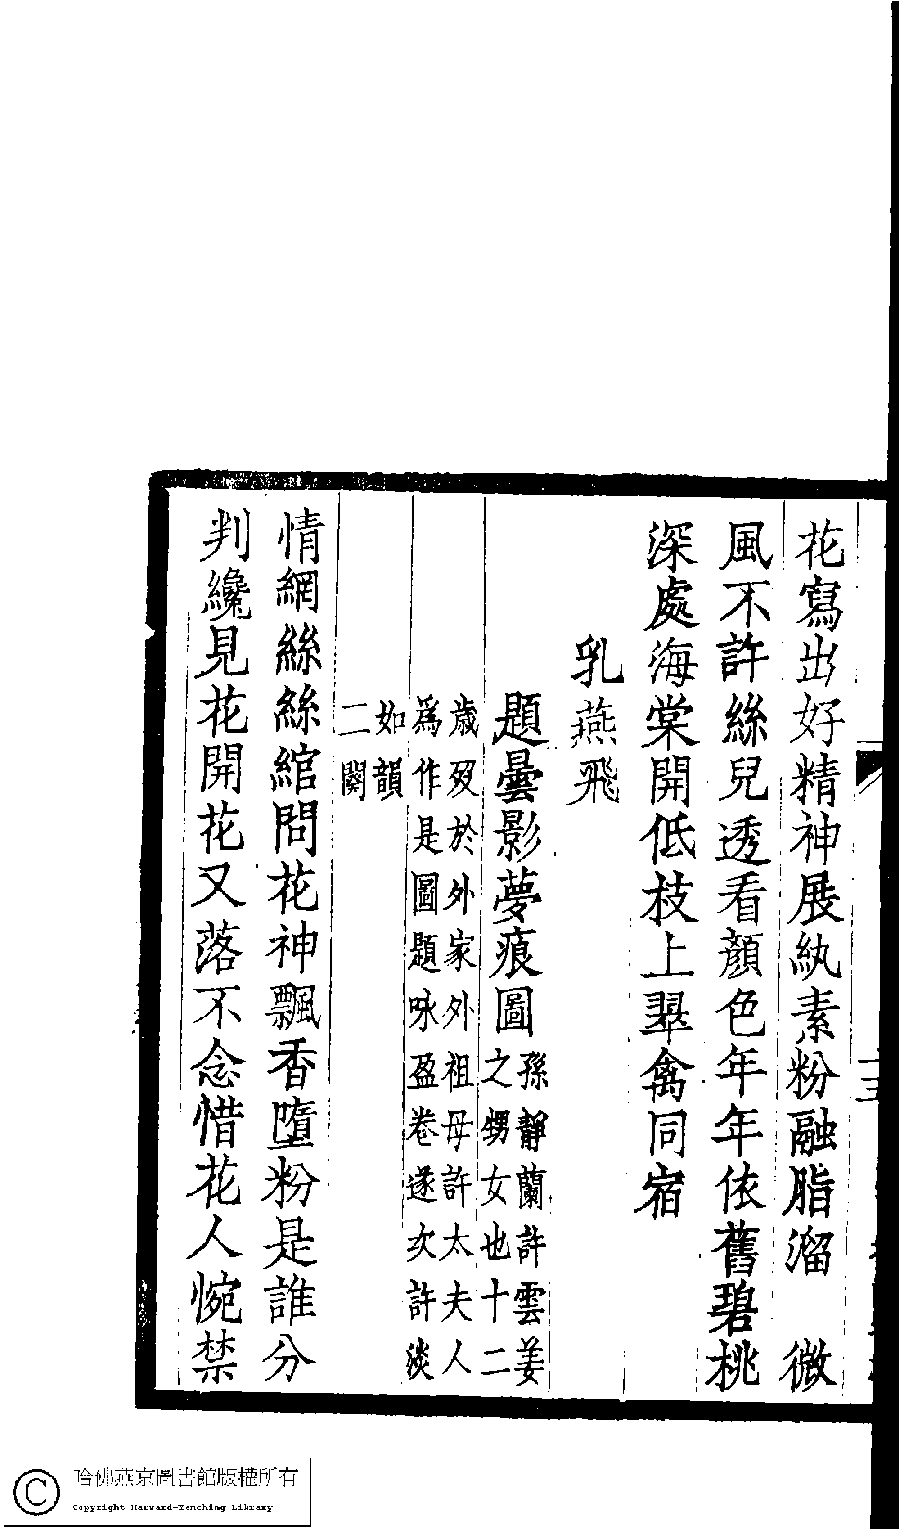 花寫出好精神展紈素粉融脂溜　微
風不許絲兒透看顏色年年依舊碧桃
深處海棠開低枝上翠禽同宿
乳燕飛
題曇影夢痕圖
孫靜蘭許雲姜
之甥女也十二
歲歿於外家外祖母許太夫人
爲作是圖題咏盈卷遂次許淡
如韻
二闋
情網絲絲綰問花神飄香墮粉是誰分
判纔見花開花又落不念惜花人惋禁
哈佛燕京圖書館版權所有
Copyright Harvard-Yenching Library